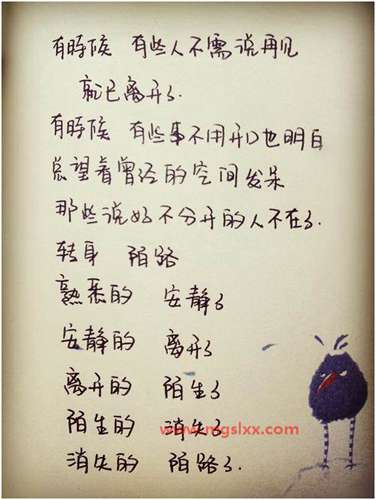 有時候 有些人不需说再见
就已离开了
有時候 有些事不用开口也明白
总望着曾经的空间发呆
那些说好不分开的人不在了.
转身 陌路
熟悉的 安静了
安静的 离开了
离开的 陌生了
陌生的 消失了
www.mgslxx.com
消失的 陌路了.